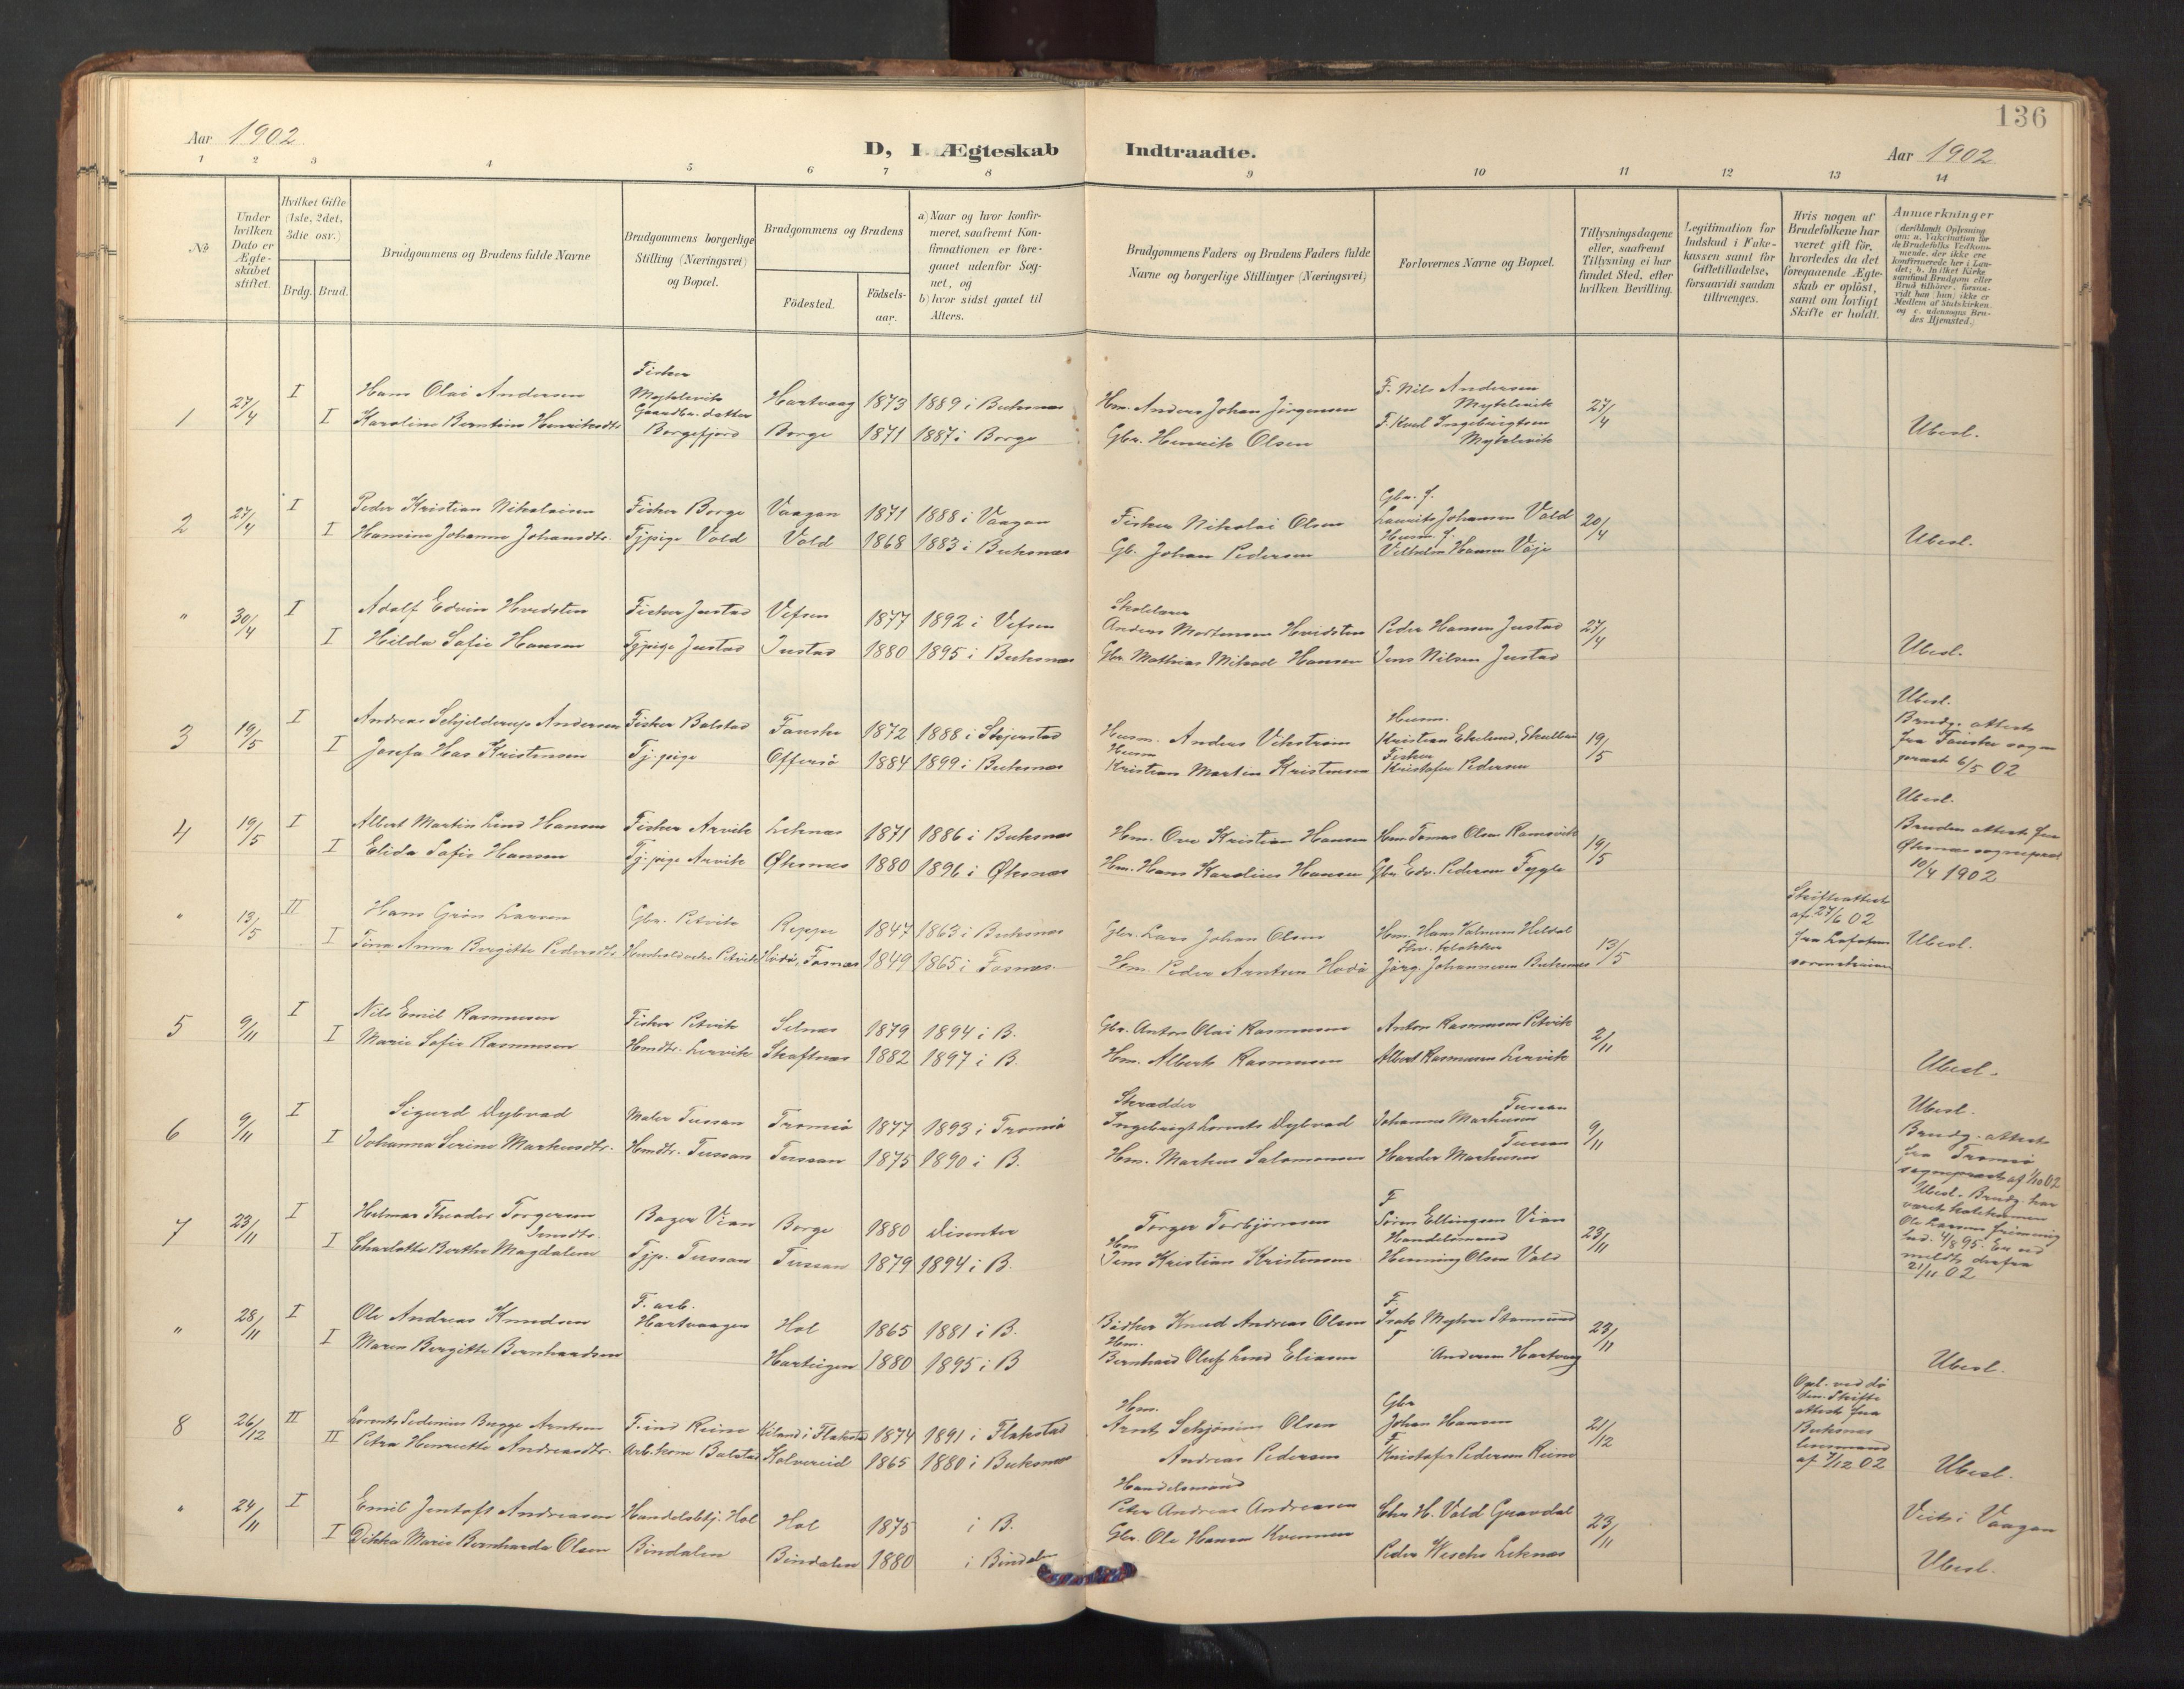 136
Aar 1902
D, I Ægteskab Indtraadte.
Aar 1902
1 2 3 4 5 6 7 8 9 10 11 12 13 14
No
Under hvilken Dato er Ægteskabet stiftet.
Hvilket Gifte (1ste, 2det, 3die osv.)
Brdg. Brud.
Brudgommens og Brudens fulde Navne
Brudgommens borgerlige Stilling (Næringsvei) og Bopæl.
Brudgommens og Brudens
Födested.
Födsels-aar.
a) Naar og hvor konfirmeret, saafremt Konfirmationen er foregaaet udenfor Sognet, og
b) hvor sidst gaaet til Alters.
Brudgommens Faders og Brudens Faders fulde Navne og borgerlige Stillinger (Næringsvei)
Forlovernes Navne og Bopæl.
Tillysningsdagene eller, saafremt Tillysning ei har fundet Sted, efter hvilken Bevilling.
Legitimation for Indskud i Enkekassen samt for Giftetilladelse, forsaavidt saadan tiltrænges.
Hvis nogen af Brudefolkene har været gift før, hvorledes da det foregaaende Ægteskab er oplöst, samt om lovligt Skifte er holdt.
Anmærkninger
(deriblandt Oplysning om: a. Vakcination for de Brudefolks Vedkommende, der ikke ere konfirmerede her i Landet; b. hvilket Kirkesamfund Brudgom eller Brud tilhörer, forsaavidt han (hun) ikke er Medlem af Statskirken, og c. udensogns Brudes Hjemsted.)
1 27/4 I Hans Olai Andersen Fisker Mytelevik Hartvaag 1873 1889 i Buksnes Hm. Anders Johan Jörgensen F. Nils Andersen Mytelevik 27/4
I Karoline Berntine Henriksdtr Gaardbr. datter Borgefjord Borge 1871 1887 i Borge Gbr. Henrik Olsen F. Knud Ingebrigtsen Mytelevik Ubesl.
2 27/4 I Peder Kristian Nikolaisen Fisker Borge Vaagan 1871 1888 i Vaagan Fisker Nikolai Olsen Gbr. f. Laurits Johansen Vold 20/4
I Hansine Johanna Johansdtr. Tjpige Vold Vold 1868 1883 i Buksnes Gb. Johan Pedersen Husm. f. Vilhelm Hansen Vaje Ubesl.
" 30/4 I Adolf Edvin Hvidsten Fisker Justad Vefsen 1877 1892 i Vefsen Skolelærer Anders Mortensen Hvidsten Peder Hansen Justad 27/4
I Hilda Sofie Hansen Tjpige Justad Justad 1880 1895 i Buksnes Gbr. Mathias Mikael Hansen Jens Nilsen Justad Ubesl.
3 19/5 I Andreas Schjelderup Andersen Fisker Balstad Fauske 1872 1888 i Skjerstad Husm. Anders Vikström Husm. Kristian Ekelund, 19/5 Ubesl. Brudg. attest fra Fauske sogneprest 6/5 02
I Josefa Has Kristensen Tj. pige Offersö 1884 1899 i Buksnes Husm Kristian Martin Kristensen Fisker Kristofer Pedersen
4 19/5 I Albert Martin Lind Hansen Fisker Arvik Leknæs 1871 1886 i Buksnæs Hm. Ove Kristian Hansen Hm. Tomas Olsen Ramsvik 19/5 Ubesl.
I Elida Sofie Hansen Tj. pige Arvik Øksnes 1880 1896 i Øksnæs Hm. Hans Karolius Hansen Gbr. Edv. Pedersen Fygle Bruden attest fra Øksnæs sogneprest 10/4 1902
" 13/5 II Hans Grön Larsen Gbr. Petvik Reppe 1847 1863 i Buksnæs Gbr. Lars Johan Olsen Hm. Hans Valnum Heldal 13/5 Skifteattest af 27/6 02 fra Lofotens sorenskriver
I Tina Anna Birgitte Pedersdtr Petvik Hodö, Fosnæs 1849 1865 i Fosnæs Hm. Peder Arntsen Hodö Jörg. Johannesen Buksnes Ubesl.
5 9/11 I Nils Emil Rasmussen Fisker Petvik Selnæs 1879 1894 i B. Gbr. Anton Olai Rasmussen Anton Rasmussen Petvik 2/11
I Marie Sofie Rasmussen Hmdtr. Lervik Skaftnæs 1882 1897 i B. Hm. Albert Rasmussen Albert Rasmussen Lervik Ubesl.
6 9/11 I Sigurd Dybvad Maler Tussan Tromsö 1877 1893 i Tromsö Skrædder Ingebrigt Lornts Dybvad Johannes Markussen Tussan 9/11 Ubesl.
I Johanna Serine Markusdtr. Hmdtr. Tussan Tussan 1875 1890 i B. Hm. Markus Salomonsen Harder Markussen Tussan Brudg. attest fra Tromsö sogneprest af 1/10 02
7 23/11 I Helmar Theodor Torgersen Bager Vian Borge 1880 Disenter Torger Torbjörnsen F Sören Ellingsen Vian 23/11 Ubesl. Brudg. har
I Charlotte Berthe Magdalene Jensdtr. Tjp. Tussan Tussan 1879 1894 i B. Hm Jens Kristian Kristensen Handelsmand Henning Olsen Vold Ole Larsens frimenig 4/8 95. Er udmeldt derfra 21/11 02
" 28/11 I Ole Andreas Knudsen F. arb. Hartvaagen Hol 1865 1881 i B. Bödker Knud Andreas Olsen F. Isak Myhre Stamsund 23/11
I Maren Birgitte Bernhardsen Hartvigen 1880 1895 i B Hm. Bernhard Oluf Lind Eliasen F Andersen Hartvaag Ubesl.
8 26/12 II Lorents Pedenius Bugge Arntsen F. ind Reine Kiland i Flakstad 1874 1891 i Flakstad Hm. Arnt Schjönin Olsen Gbr Johan Hansen 21/12 Opl. ved död. Skifteattest fra Buksnes lensmand af 7/12 02
II Petra Henriette Andreasdtr. Arb. kone Balstad Holvereid 1865 1880 i Buksnes Andreas Pedersen F Kristofer Pedersen Reine Ubesl.
" 24/11 I Emil Jentoft Andreasen Handelsbtj. Hol Hol 1875 i B. Handelsmand Peter Andreas Andreasen Chr. H. Vold Gravdal 23/11 Viet i Vaagan
I Dikka Marie Bernharda Olsen Bindalen Bindalen 1880 i Bindalen Gbr. Ole Hansen Kvennen Peder Wesche Leknæs Ubesl.